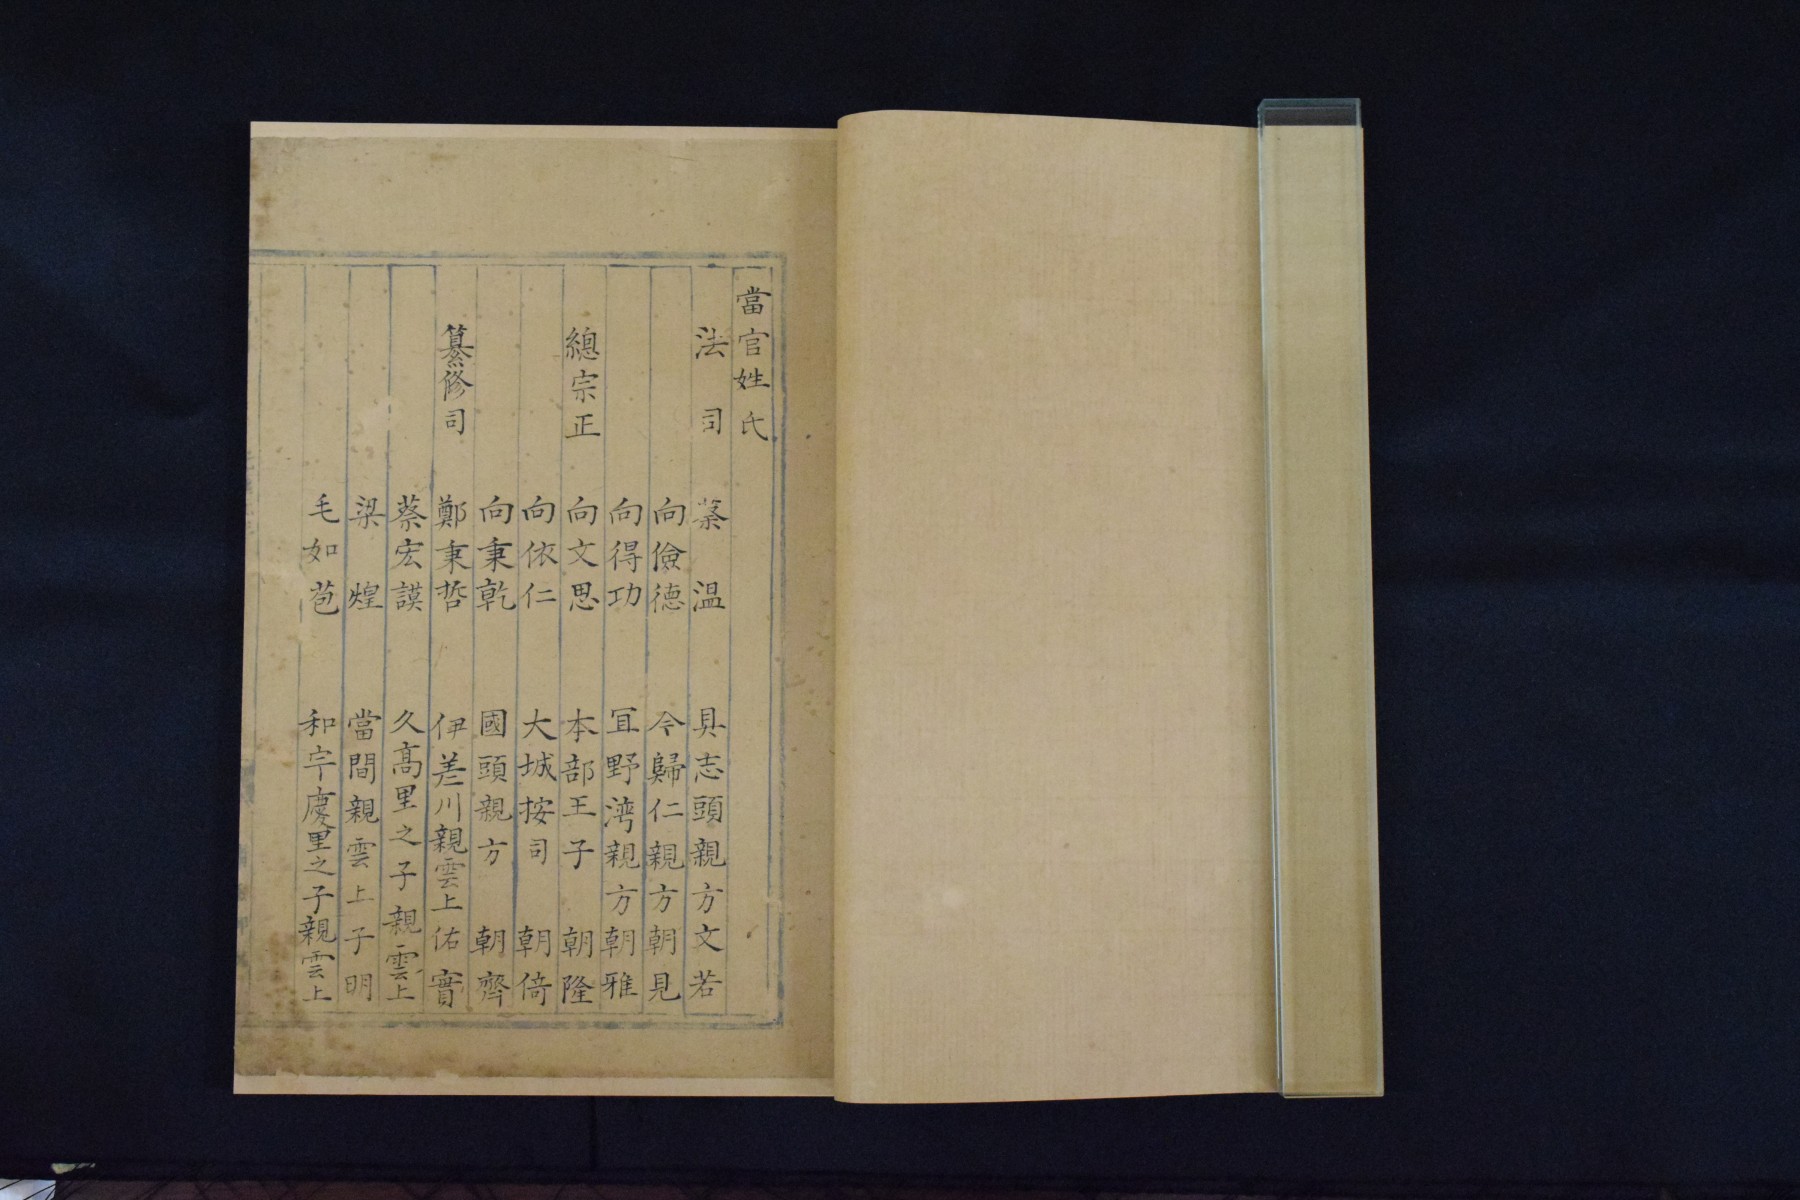 當官姓氏
法司 蔡温 具志頭親方文若
向儉德 今歸仁親方朝見
向得功 冝野湾親方朝雅
總宗正 向文思 本部王子朝隆
向依仁 大城按司朝倚
向秉乾 國頭親方朝齊
纂修司 鄭秉哲 伊差川親雲上佑實
蔡宏謨 久髙里之子親雲上
梁煌 當間親雲上子明
毛如苞 和宇慶里之子親雲上